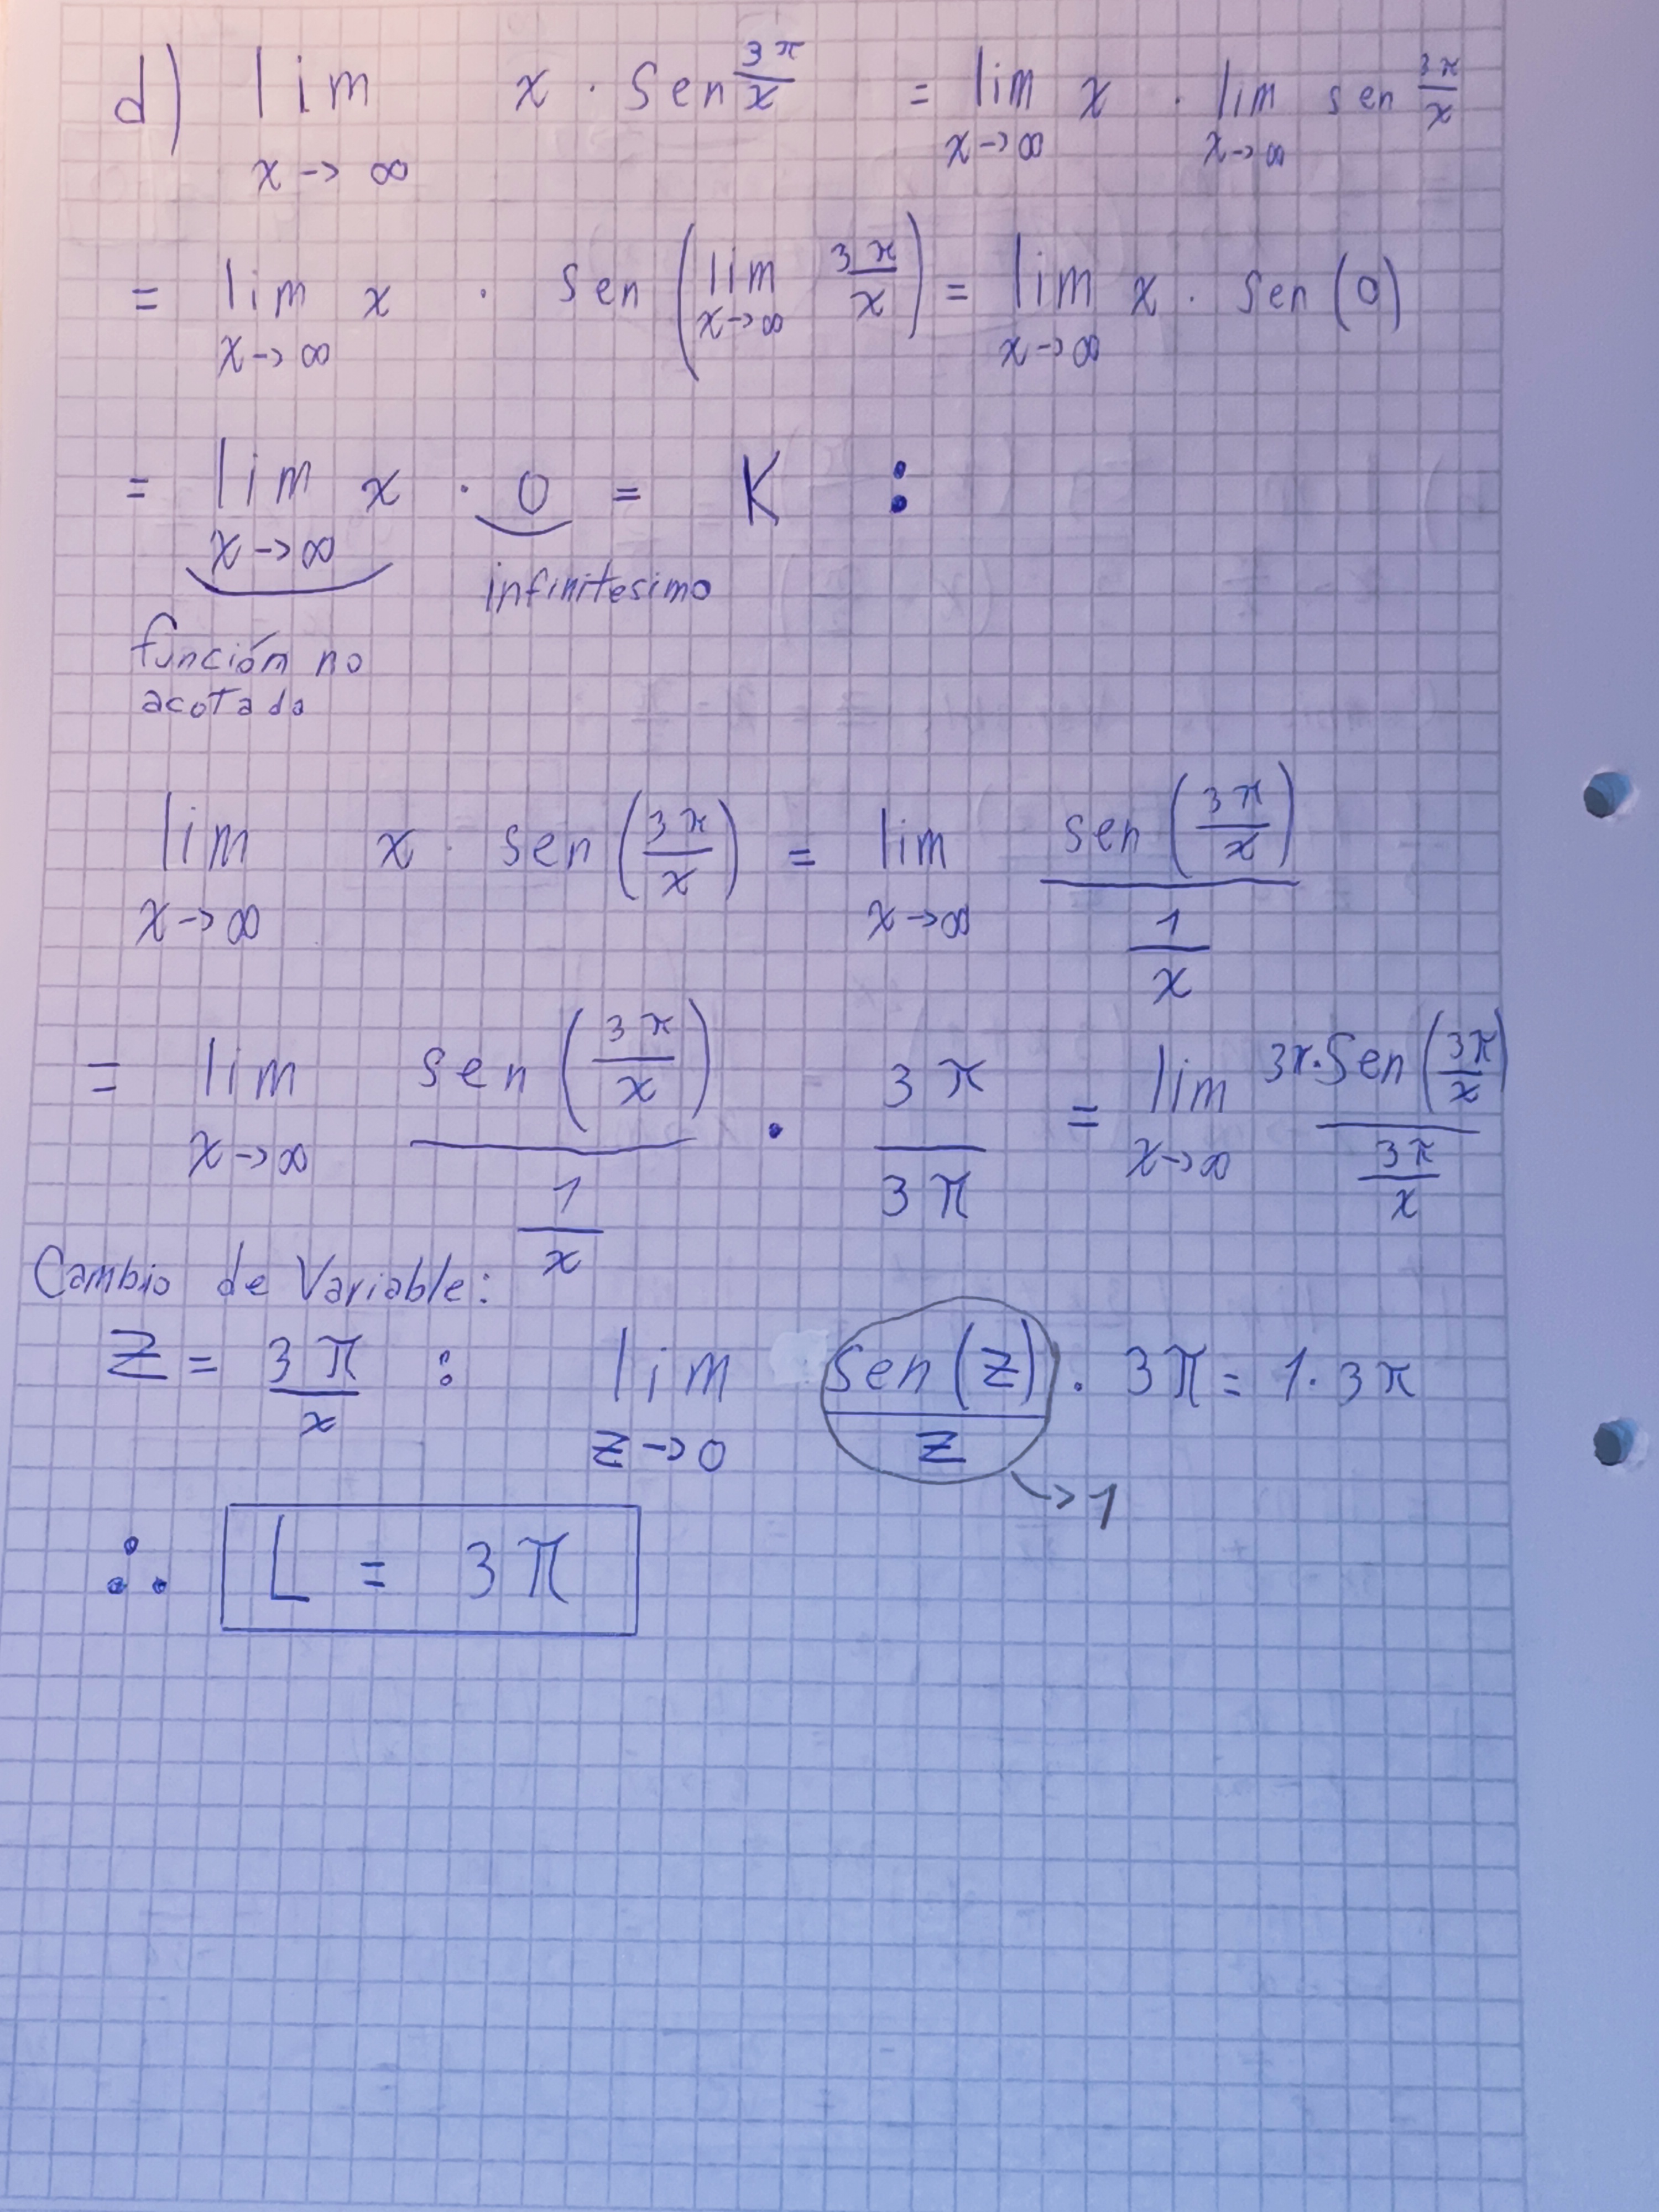 d) lim x→∞ x · Sen 3π/x = lim x→∞ x · lim x→∞ sen 3π/x
= lim x→∞ x · sen (lim x→∞ 3π/x) = lim x→∞ x · sen (0)
= lim x→∞ x · 0 = K :
infinitesimo
función no
acotada
lim x→∞ x · sen (3π/x) = lim x→∞ sen (3π/x) / (1/x)
= lim x→∞ sen (3π/x) / (1/x) · 3π/3π = lim x→∞ 3π·Sen (3π/x) / (3π/x)
Cambio de Variable:
Z = 3π/x : lim z→0 Sen (z)/z · 3π = 1 · 3π
→ 1
∴ L = 3π